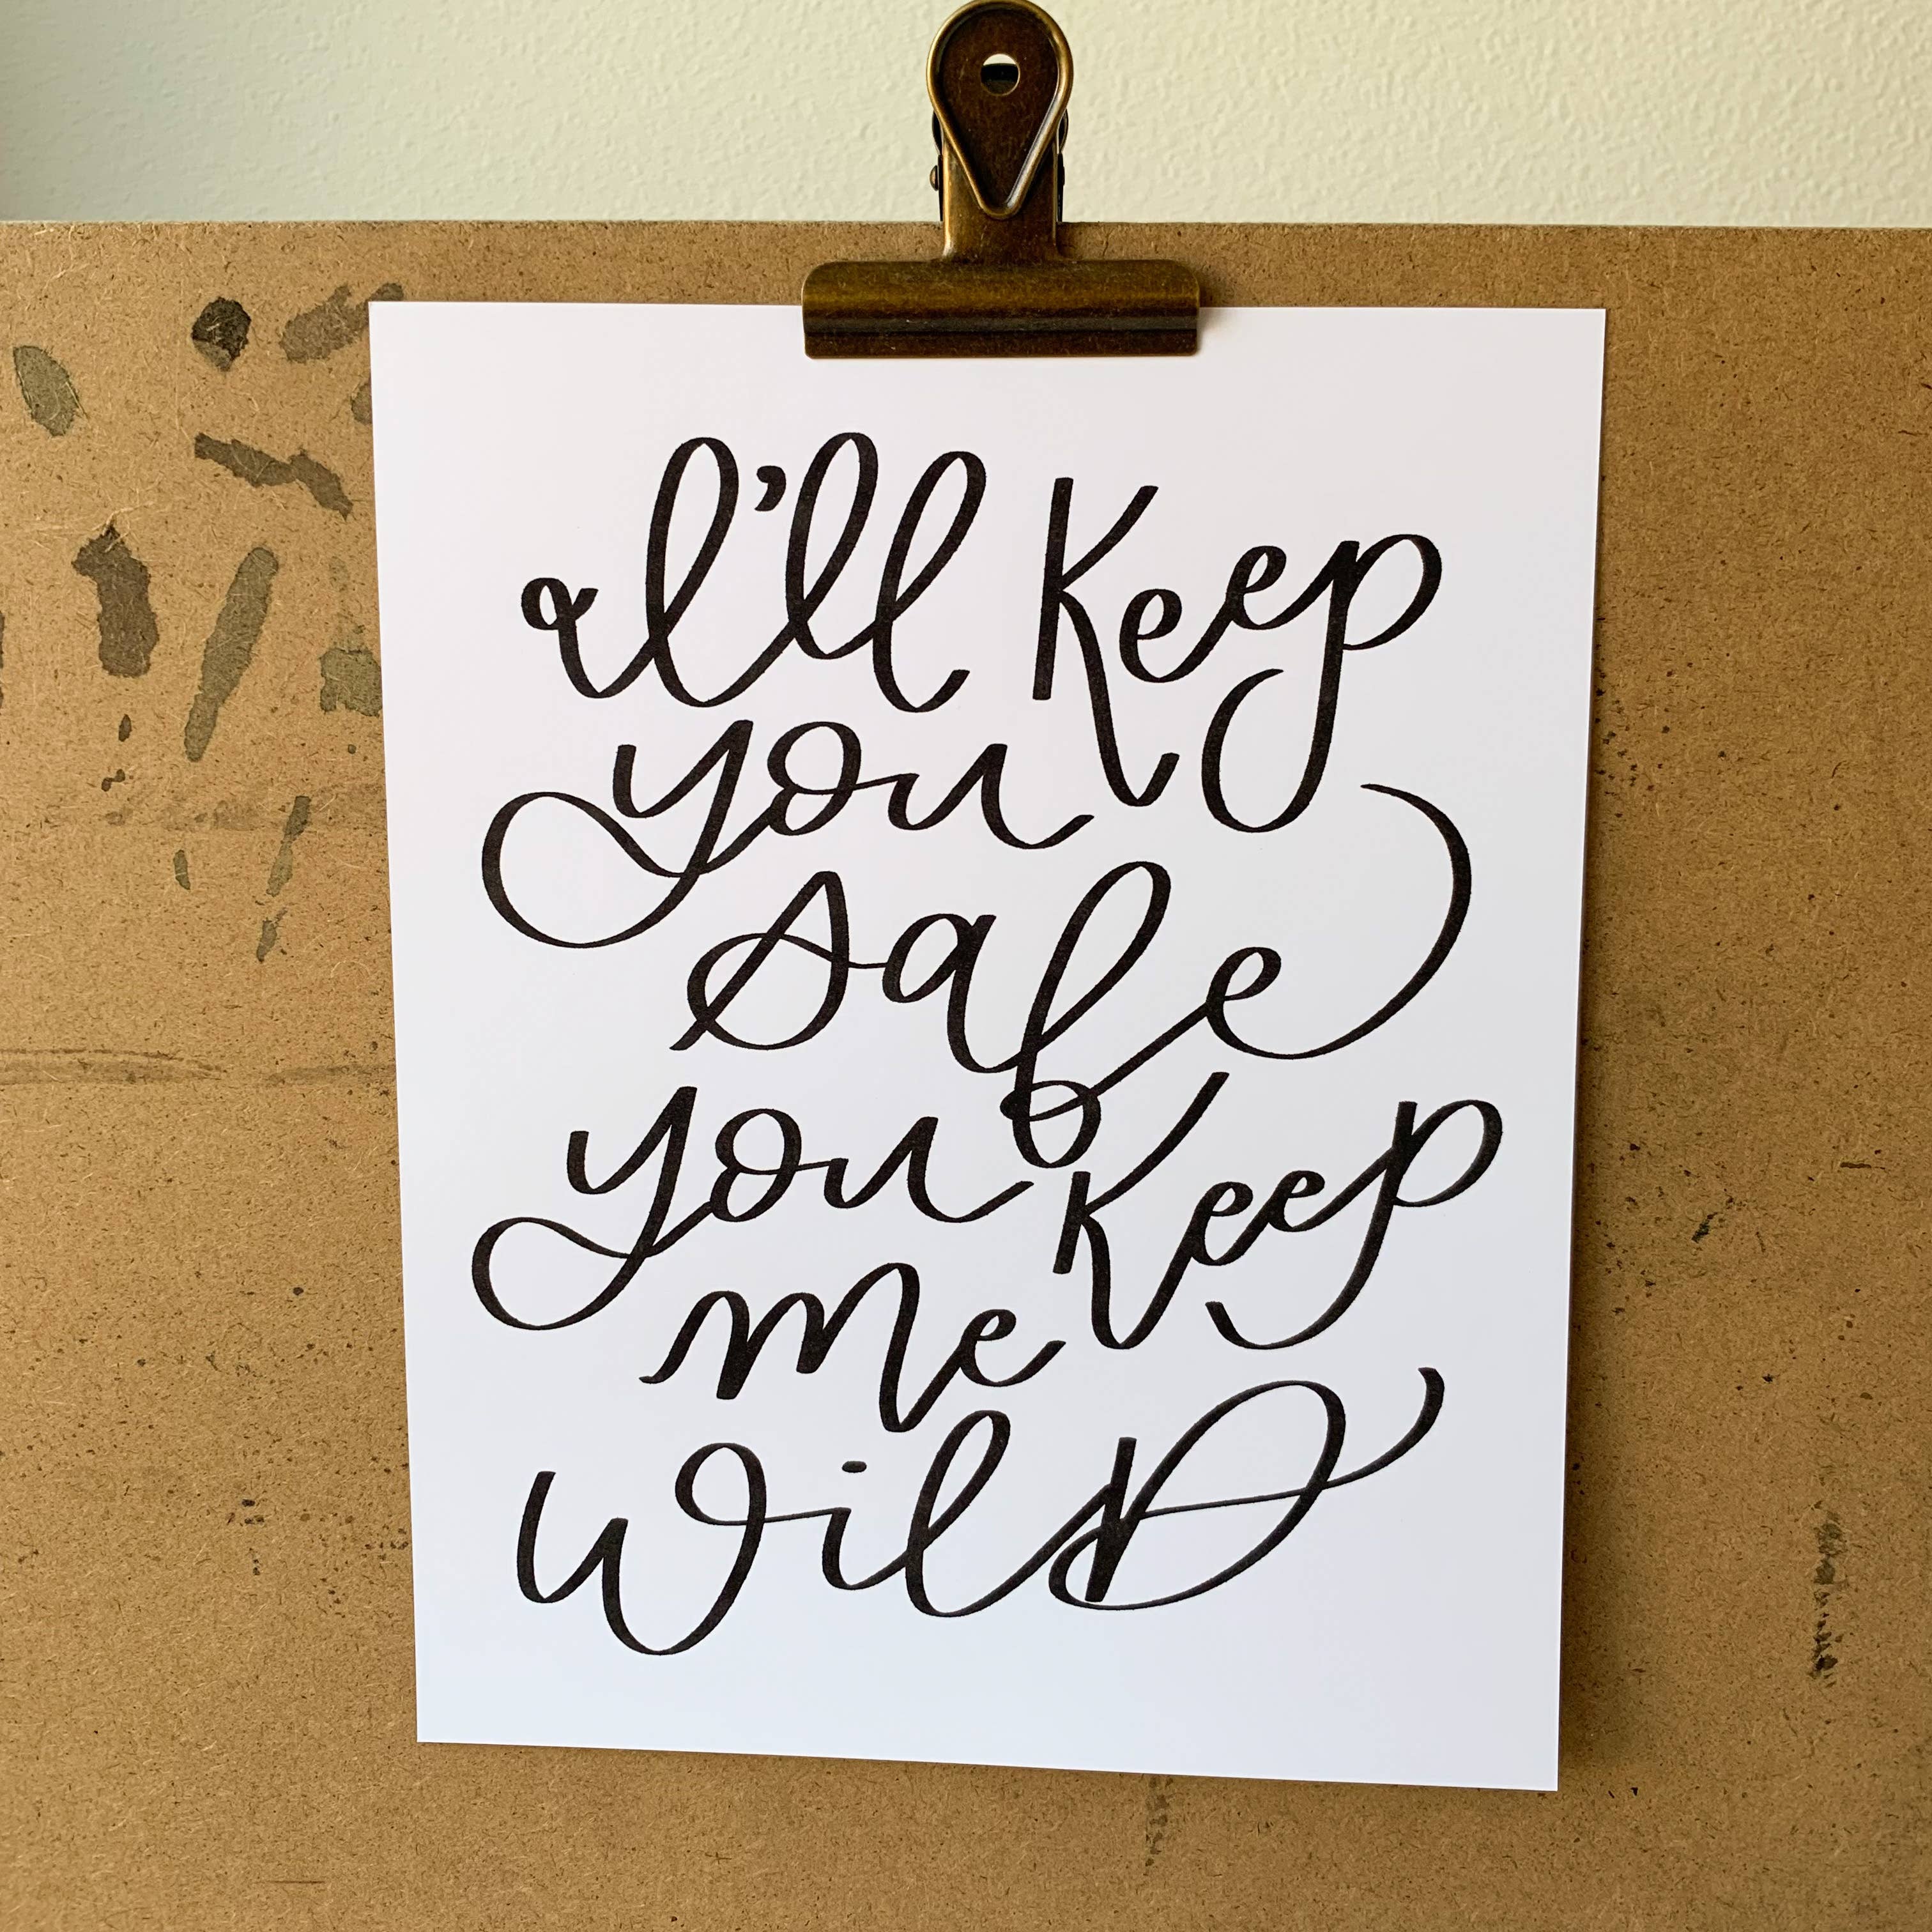 I'll Keep
you
safe
you Keep
me
wilD